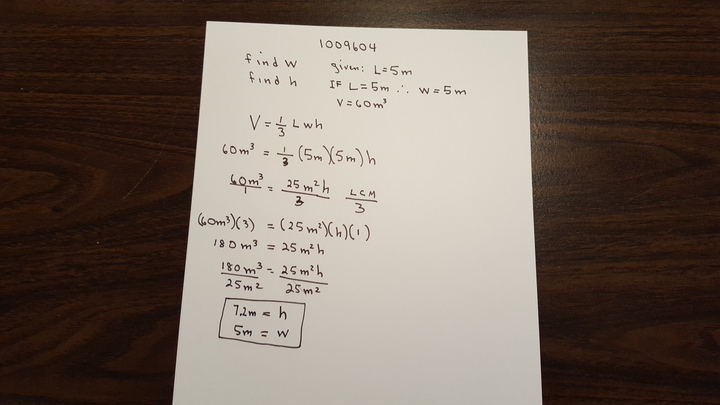 1009604
find w given: L=5m
find h IF L=5m ∴ w=5m
V=60m³
V = 1/3 Lwh
60m³ = 1/3 (5m)(5m)h
60m³/1 = 25m²h/3 LCM/3
(60m³)(3) = (25m²)(h)(1)
180m³ = 25m²h
180m³/25m² = 25m²h/25m²
7.2m = h
5m = w